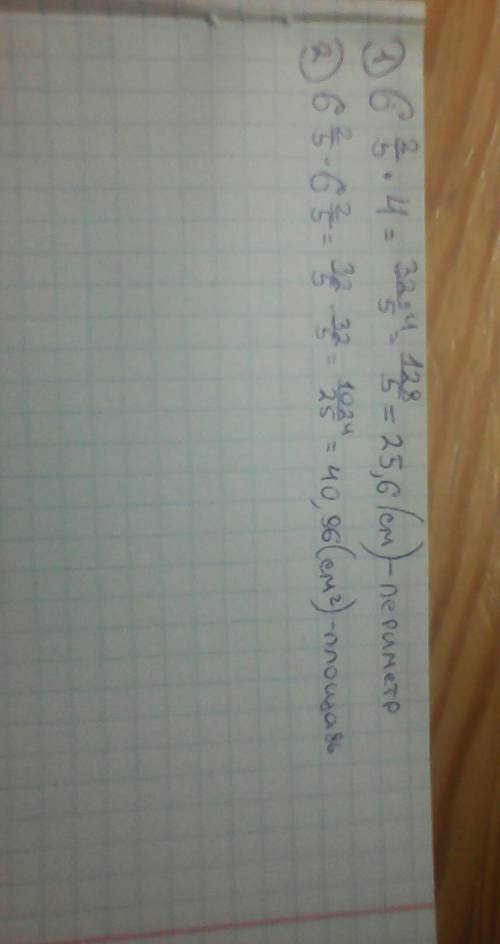 ① 6 2/5 · 4 = 32·4/5 = 128/5 = 25,6 (см) - периметр
② 6 2/5 · 6 2/5 = 32/5 · 32/5 = 1024/25 = 40,96 (см²) - площадь